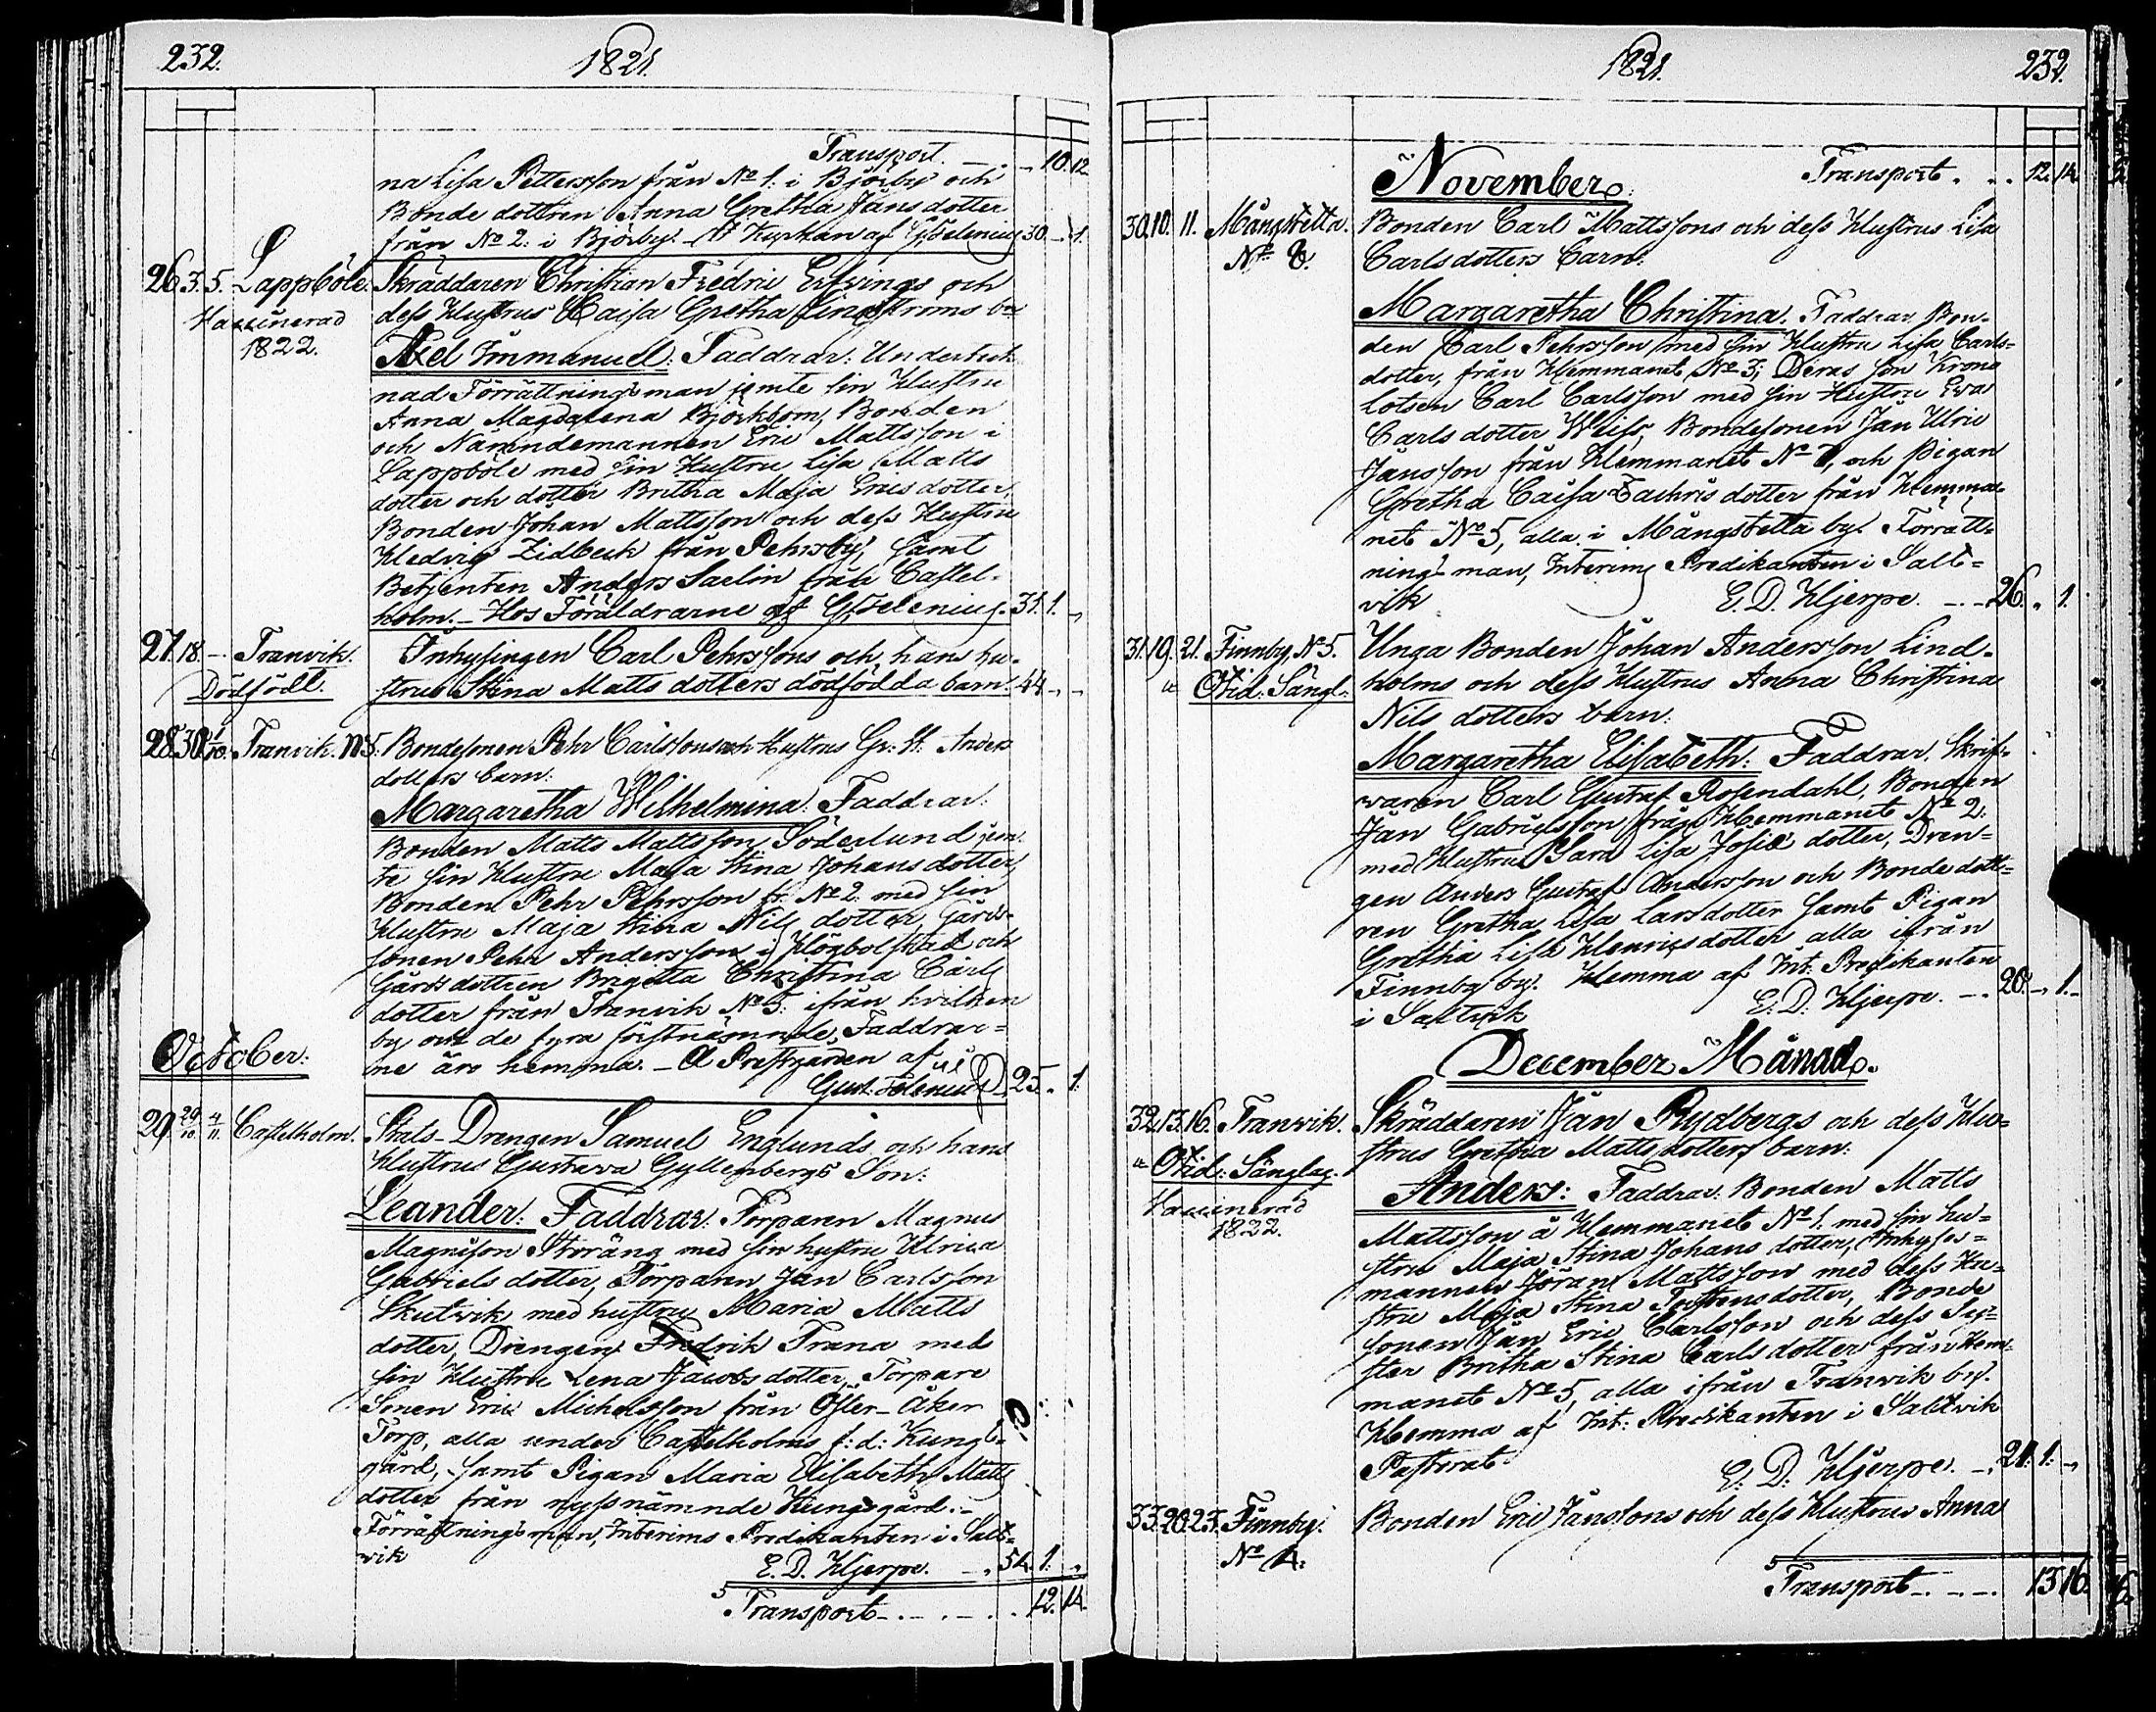 232.
1821.
Transport. — 10. 12
na Lisa Pettersson från No 1: i Björby och
Bonde dottren Anna Gretha Jäns dotter
från No 2: i Björby. af Kyrkan af G. Helenius 30. — 1.
26. 3. 5. Lappböle. Skräddaren Christian Fredric och
Vaccinerad
1822.
dess Hustrus Caisa Gretha Lindströms bn
Axel Immanuel. Faddrar: Underteck
nad Förrättningsman jemte sin Hustru
Anna Magdalena Björkbom, Bonden
och Nämndemannen Eric Mattsson i
Lappböle med sin Hustru Lisa Matts
dotter och dotter Britha Maja Erics dotter,
Bonden Johan Mattsson och dess Hustru
Hedvig Zidbeck från Pehrsby, samt
Betjenten Anders Saelin från Castel-
holm. — Hos Föräldrarne af G. Helenius. 31. 1. —
27. 18. — Tranvik. Inhysingen Carl Pehrssons och hans hu-
Dödfödt. strus Stina Matts dotters dödfödda barn. 44. — —
28. 30. Tranvik. N5. Bondesonen Pehr Carlssons och Hustrus Gr: St. Anders
dotters barn:
Margaretha Wilhelmina. Faddrar:
Bonden Matts Mattsson Söderlund jem-
te sin Hustru Maja Stina Johans dotter,
Bonden Pehr Pehrsson fr. No 2. med sin
Hustru Maja Stina Nils dotter Gårds-
sonen Pehr Andersson i Högbolstad och
Gårdsdottren Brigitta Christina Carls
dotter från Tranvik No 5: ifrån hvilken
by ock de fyra förstnämnde Faddrar-
ne äro hemma. — A Prestgården af
Gust. Helenius 25. . 1.
October:
29. 29/10. 4/11. Castelholm. Stats-Drengen Samuel Englunds och hans
Hustrus Gustava Gyllenbergs Son:
Leander: Faddrar: Torparen Magnus
Magnisson Storäng med sin hustru Ulrica
Gabriels dotter, Torparen Jan Carlsson
Skutvik med hustru Maria Matts
dotter, Drengen Fredrik Trana med
sin Hustru Lena Jacobs dotter, Torpare
Sonen Eric Michelsson från Öster-Åker
Torp, alla under Castelholms f: d: Kungs-
gård, samt Pigan Maria Elisabeth Matts
dotter från nyssnämnde Kungsgård. —
Förrättningsman, Interims Predikanten i Salt-
vik E. D. Hjerpe. —. 54. 1. .
Transport — . — . — . . 12. 14.
1821.
232.
November. Transport. . . 12. 14.
30. 10. 11. Mångstekta. Bonden Carl Mattssons och dess Hustrus Lisa
No 8. Carlsdotters barn:
Margaretha Christina. Faddrar Bon-
den Carl Pehrsson med sin Hustru Lisa Carls-
dotter, från Hemmanet No 3; Deras son Krono
Lotsen Carl Carlsson med sin Hustru Eva
Carls dotter Weiss, Bondesonen Jan Ulric
Jansson från Hemmanet No 7, och Pigan
Gretha Caisa Zachris dotter från Hemma-
net No 5, alla i Mångstekta by. Förrätt-
ningsman, Interims Predikanten i Salt-
vik E. D. Hjerpe. — . — 26. . 1.
31. 19. 21. Finnby, No 5. Unga Bonden Johan Andersson Lind-
" Otid: Sängl. holms och dess Hustrus Anna Christina
Nils dotters barn:
Margaretha Elisabeth: Faddrar. Skrif-
waren Carl Gustaf Rosendahl, Bonden
Jan Gabrielsson från Hemmanet No 2:
med Hustru Sara Lisa dotter, Dren-
gen Anders Gustaf Andersson och Bondedott-
ren Gretha Lisa Larsdotter samt Pigan
Gretha Lisa Henricsdotter alla ifrån
Finnby by. Hemma af Int. Predikanten
i Saltvik E. D. Hjerpe. — . 20. — 1. —
December Månad.
32. 13. 16. Tranvik. Skräddaren Jan Rydbergs och dess Hu-
" Otid: Sänglag. strus Gretha Matts dotters barn:
Vaccinerad
1822.
Anders: Faddrar: Bonden Matts
Mattsson å Hemmanet No 1. med sin hu-
stru Maja Stina Johans dotter, Inhyses-
mannen Jöran Mattsson med dess Hu-
stru Maja Stina dotter, Bonde
sonen Jan Eric Carlsson och dess Sy-
ster Britha Stina Carls dotter från Hem-
manet No 5, alla ifrån Tranvik by.
Hemma af Int: Predikanten i Saltvik
Pastorat E. D. Hjerpe. —. 21. 1. —
33. 20. 23. Finnby. Bonden Eric Janssons och dess Hustrus Anna
No 4.
Transport — . — . — . 13. 16.